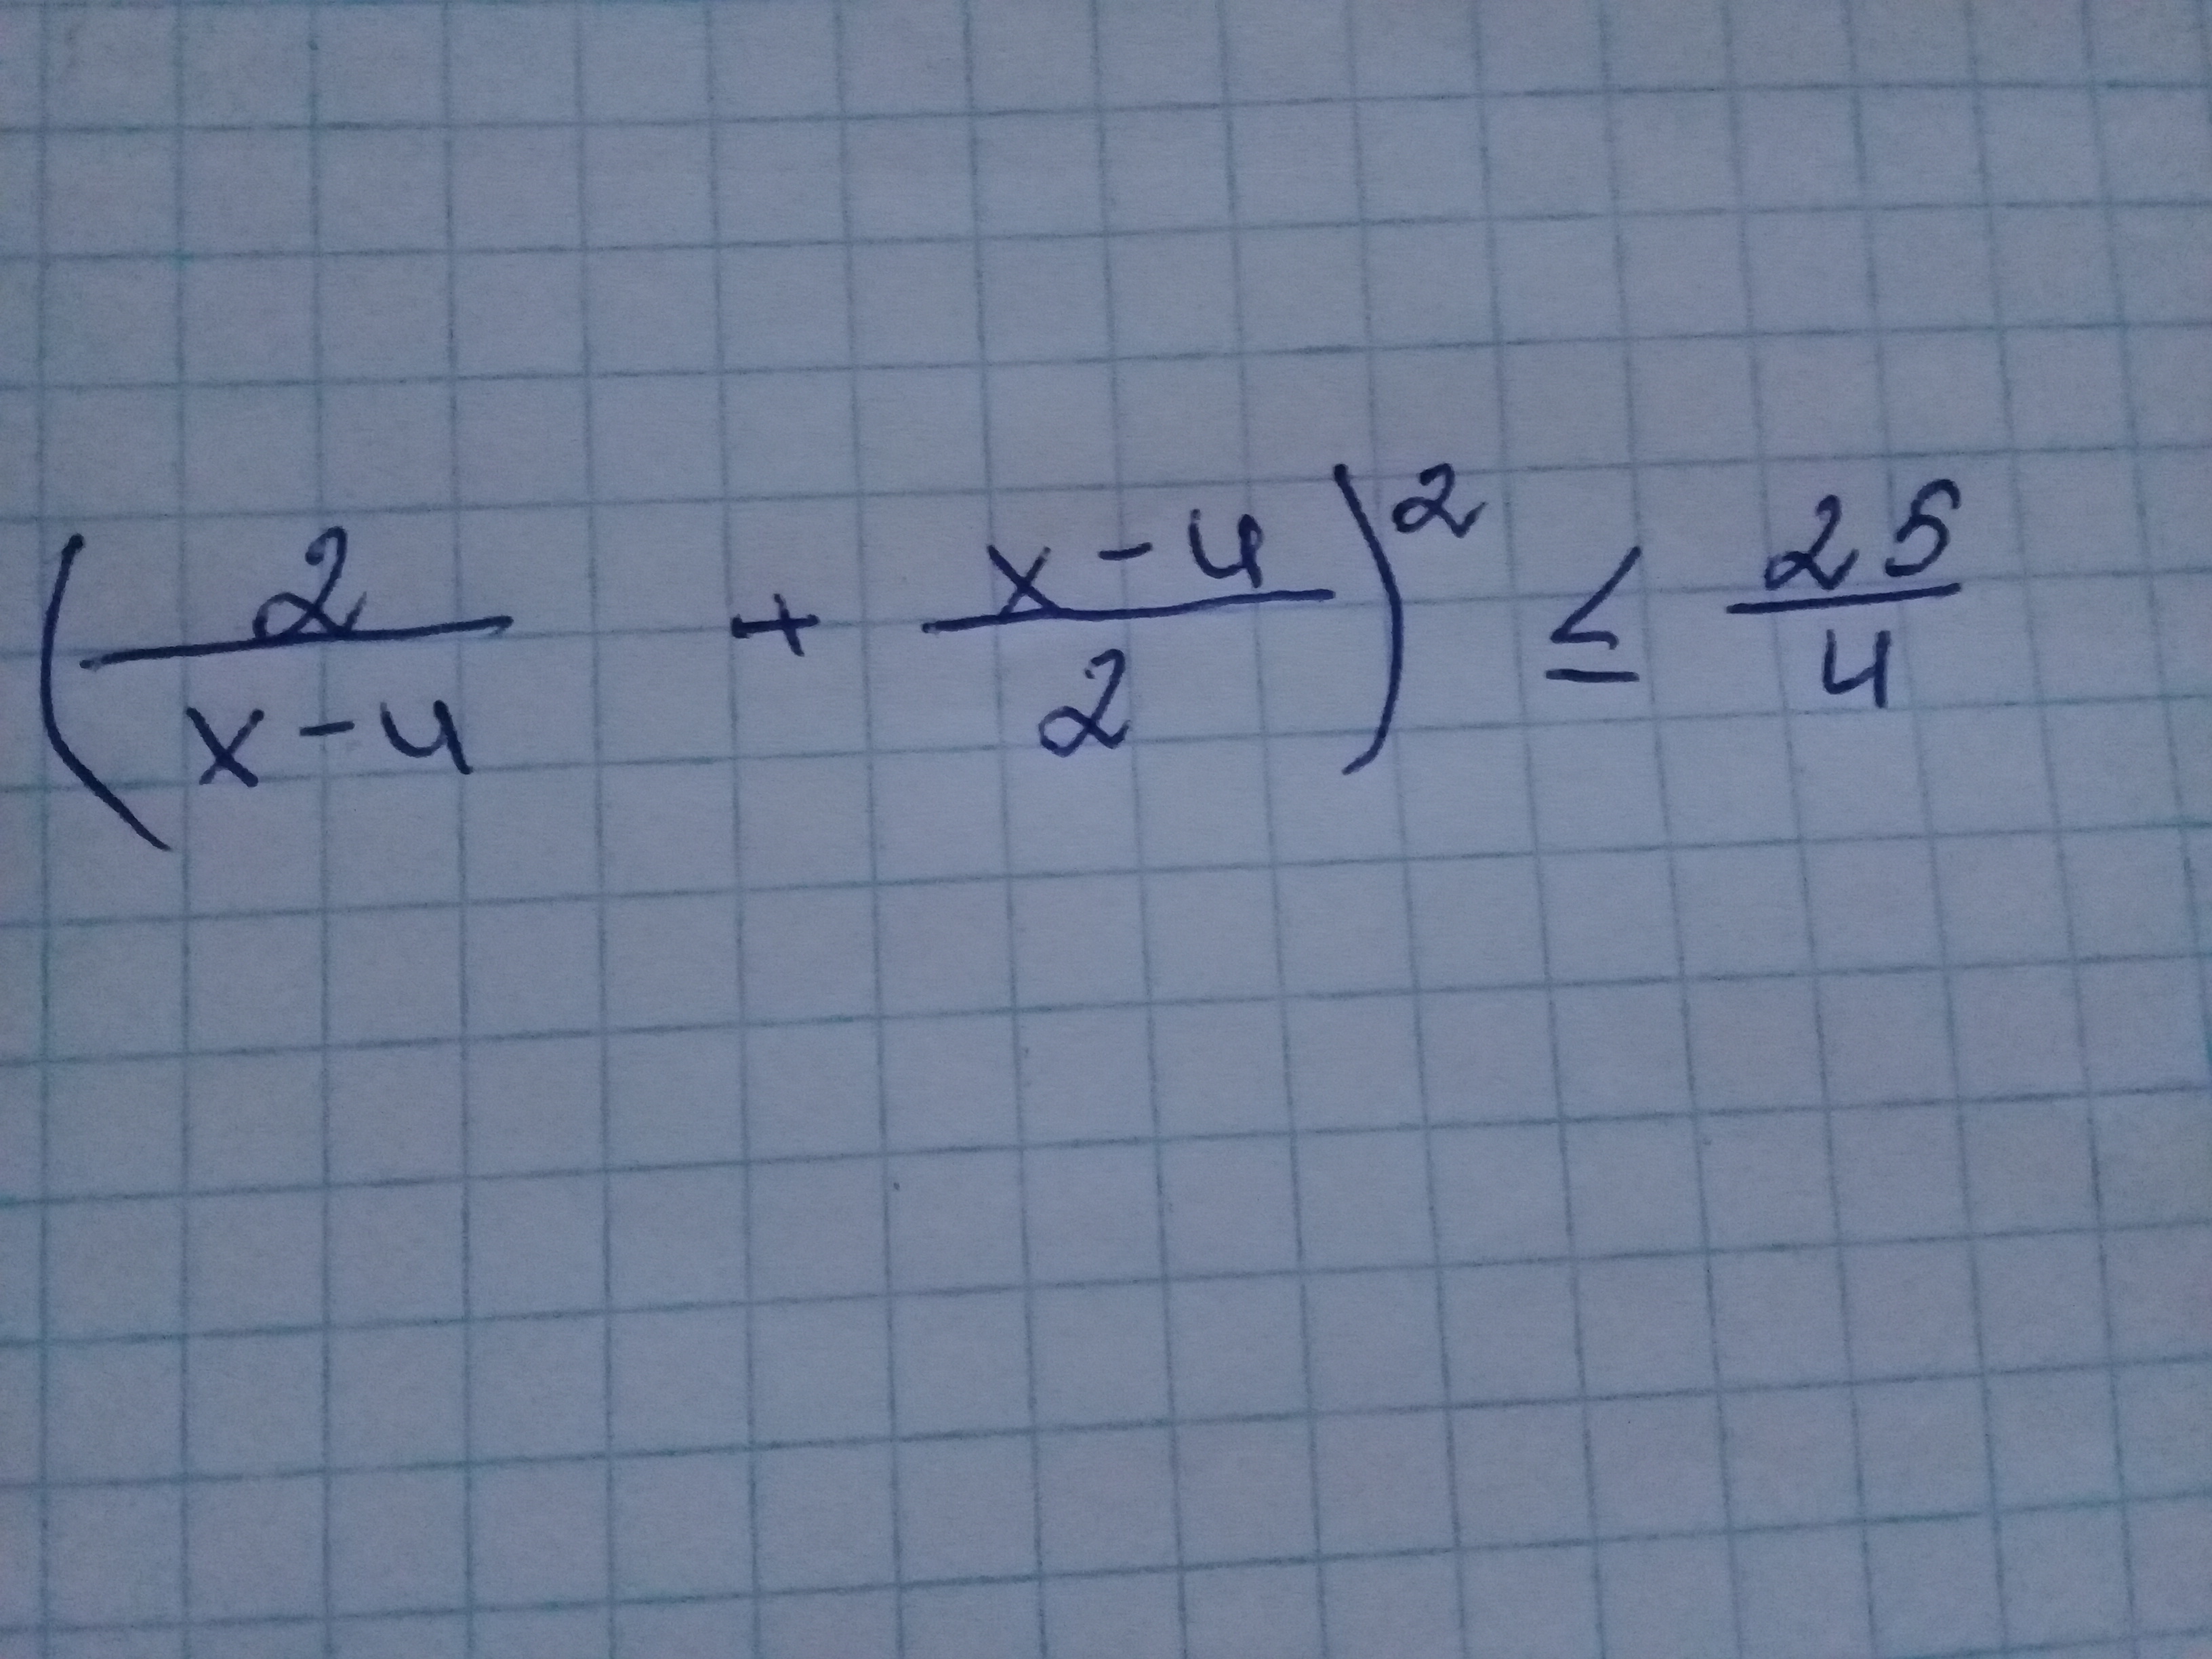 (2/(x-4) + (x-4)/2)² ≤ 25/4